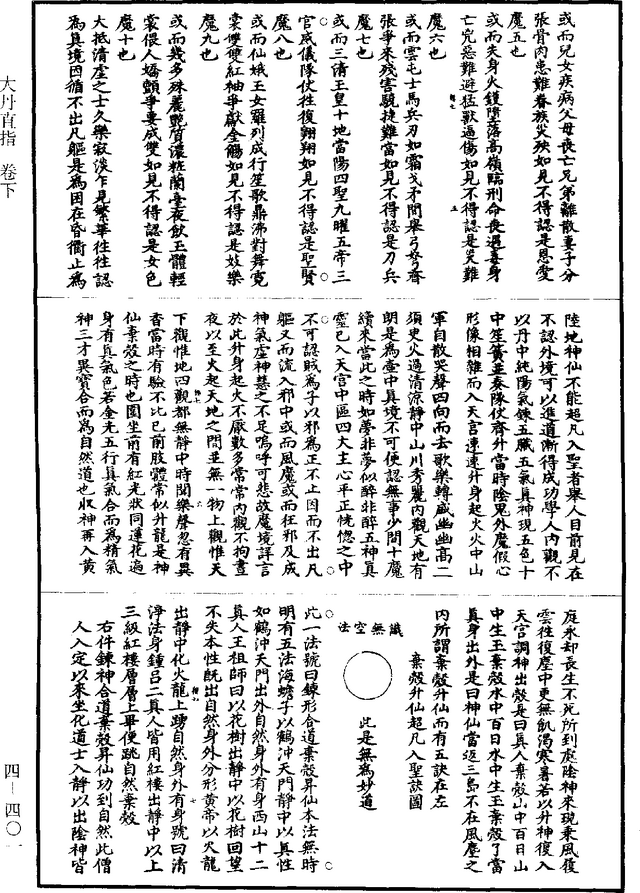 大丹直指　卷下
或而兒女疾病父母喪亡兄弟離散妻子分
張骨肉患難眷族災殃如見不得認是恩愛
魔五也
或而失身火鑊墮落高嶺臨刑命喪遇毒身
亡兇惡難避猛獸逼傷如見不得認是災難
魔六也
或而雲屯士馬兵刃如霜戈矛間舉弓弩齊
張爭來殘害驍捷難當如見不得認是刀兵
魔七也
或而三清玉皇十地當陽四聖九曜五帝三
官威儀隊仗往復翱翔如見不得認是聖賢
魔八也
或而仙娥玉女羅列成行笙歌鼎沸對舞霓
裳雙雙紅袖爭獻金觴如見不得認是妓樂
魔九也
或而幾多殊麗艷質濃粧蘭臺夜飲玉體輕
裳偎人嬌顫爭要成雙如見不得認是女色
魔十也
大抵清虛之士久樂寂淡乍見繁華往往認
為真境因循不出凡軀是為困在昏衢止為
陸地神仙不能超凡入聖者舉人目前見在
不認外境可以進道漸得成功學人內觀不
以丹中純陽氣鍊五臟五氣真神現五色十
中笙簧並奏隊仗齊升當時陰鬼外魔假心
形像相雜而入天宮速速升身起火火中山
軍自散哭聲四向而去歌樂轉盛幽幽高二
須臾火過清涼靜中山川秀麗內觀天地有
朗是為壺中真境不可便認無事少間十魔
續來當此之時如夢非夢似醉非醉五神真
靈已入天宮中區四大主心平正恍惚之中
不可認賊為子以邪為正不止因而不出凡
軀又而流入邪中或而風魔或而狂邪及成
神氣虛神慧之不足嗚呼可悲故魔境詳言
於此升身起火不厭數多常常內觀不拘晝
夜以至火起天地之間並無一物上觀惟天
下觀惟地四觀都無靜中時聞樂聲忽有異
香當時有驗不比已前肢體常似升龍是神
仙棄殼之時也園坐前有紅光狀同蓮花遍
身有真氣色若金光五行真氣合而為精氣
神三才異寶合而為自然道也收神再入黃
庭永却長生不死所到處陰神來現乘風履
雲往復塵中更無飢渴寒暑若以升神復入
天宮調神出殼是曰真人棄殼山中百日山
中生玉棄殼水中百日水中生玉棄殼了當
真身出外是曰神仙當返三島不在風塵之
內所謂棄殼升仙而有五訣在左
棄殼升仙超凡入聖訣圖
識無空法
此是無為妙道
此一法號曰鍊形合道棄殼昇仙本法無時
明有五法海蟾子以鶴沖天門靜中以真性
如鶴沖天門出外自然身外有身西山十二
真人王祖師曰以花樹出靜中以花樹回望
不失本性既出自然身外分形黃帝以火龍
出靜中化火龍上踴自然身外有身號曰清
淨法身鍾呂二真人皆用紅樓出靜中以上
三級紅樓層層上畢便跳自然棄殼
右件鍊神合道棄殼昇仙功到自然此僧
人入定以來坐化道士入靜以出陰神皆
四–四〇一